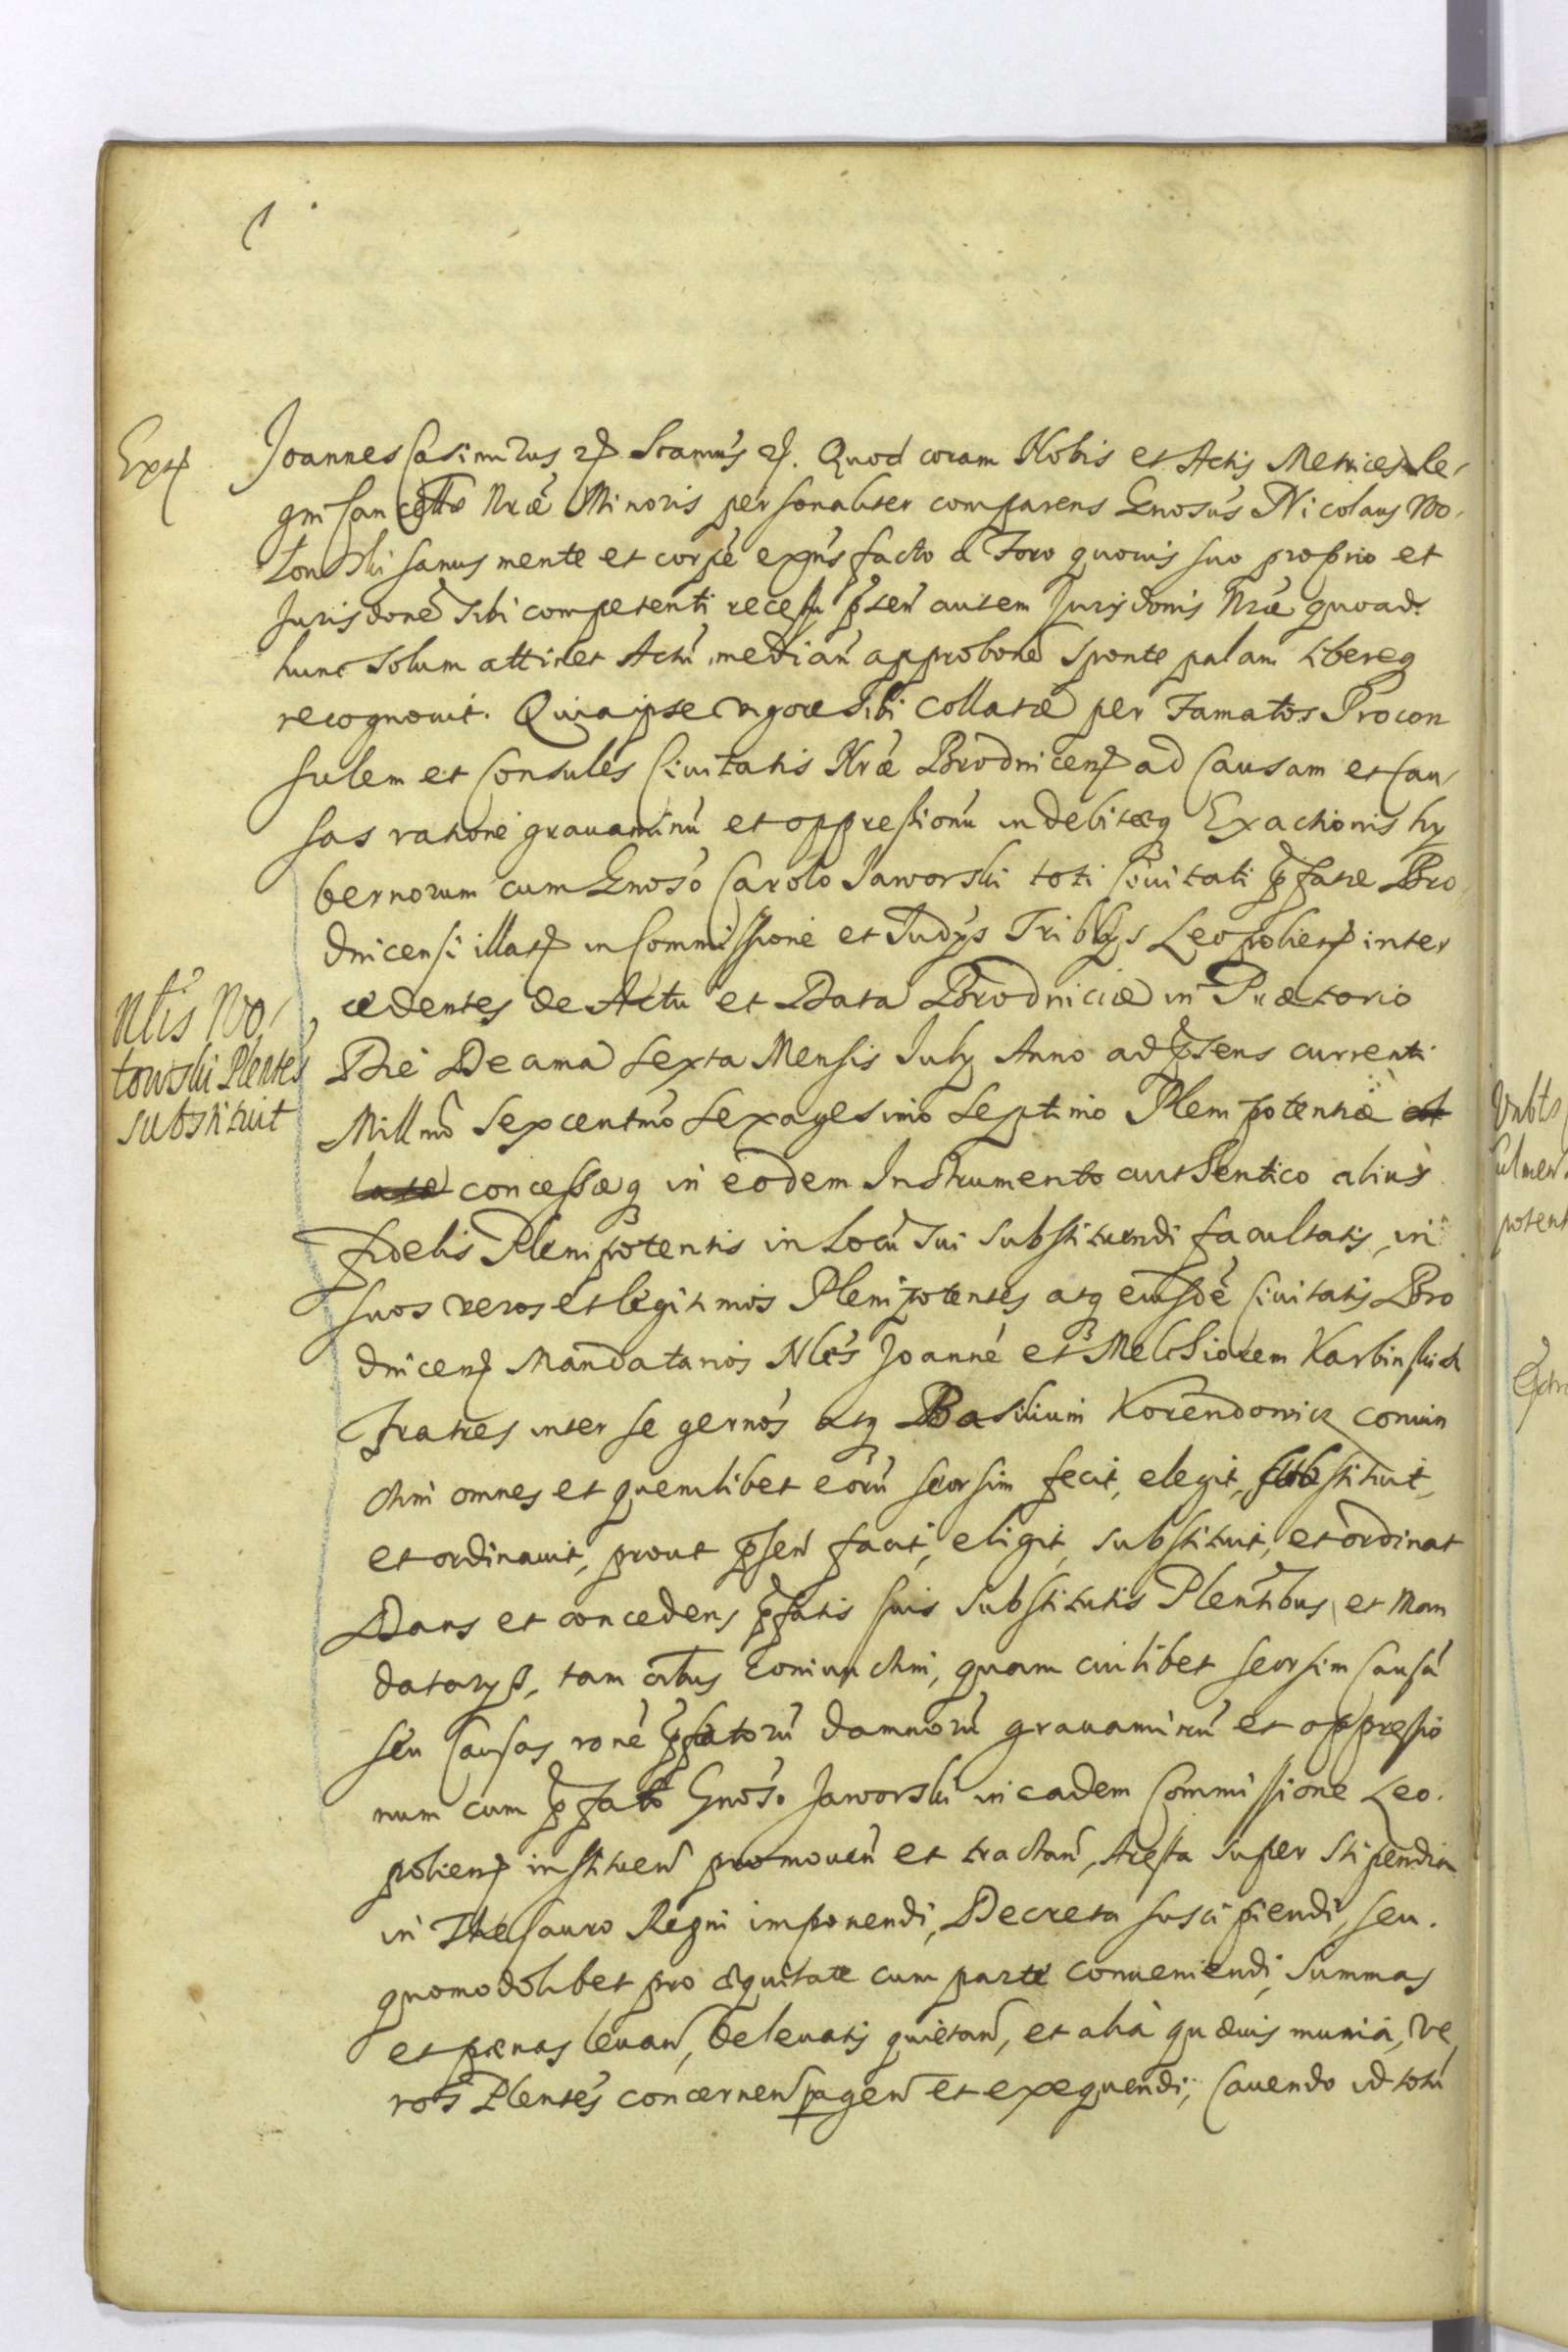 Joannes Casimirus etc Scamus etc. Quod coram Nobis et Actis Metrices Re-
gni Cancellae Nrae Minoris personaliter comparens Gnosus Nicolaus Wo-
towski sanus mente et corpe expns facto a Foro quovis suo proprio et
Jurisdone sibi competenti recessu pnten autem Jurisdonis Nrae quoad
hunc solum attinet Actu median approbone sponte palam libereq
recognovit. Quia ipse vigore sibi collatae per Famatos Procon
sulem et Consules Civitatis Nrae Brodnicen ad Causam et Cau-
sas ratione gravaminu et oppressionu indebitaeq Exactionis hy
bernorum cum Gnoso Carolo Jaworski toti Civitati pfatae Bro-
dnicensi illat in Commissione et Judys Leopolien inter
cedentes de Actu et Data Brodniciae in Praetorio
Die Decama sexta Mensis July Anno ad psens currenti
Millmo Sexcentmo Sexagesimo Septimo Plenipotentiae et
latae concessaeq in eodem Instrumento authentico alius
fidelis Plenipotentis in Locu sui substituendi facultatis, in
suos veros et legitimos Plenipotentes atq eiusde Civitatis Bro
dnicen Mandatarios Nles Joanne et Melchiorem Karbinskich
Fratres inter se gernos atq Basilium Korendowicz coniun
ctim omnes et quemlibet eoru seorsim fecit, elegit, substituit,
et ordinavit, prout psen facit, eligit, substituit, et ordinat
Dans et concedens pfatis suis substitutis Plentibus et Man
datarys, tam oibus coniunctim, quam cuilibet seorsim Causa
seu Causas rone pfatoru damnoru gravaminu et oppressio
num cum pfato Gnoso Jaworski in eadem Commissione Leo-
polien instituen promoven et tractan, Aresta super stipendia
in Thesauro Regni imponendi, Decreta suscipiendi, seu
quomodolibet pro aequitate cum parte conveniendi, Summas
et paenas levan, de levatis quietan, et alia quaevis munia, ve
ros Plentes concernen pagen et exequendi, Cavendo id totu
Ext
Nlis Wo-
towski Plentes
substituit